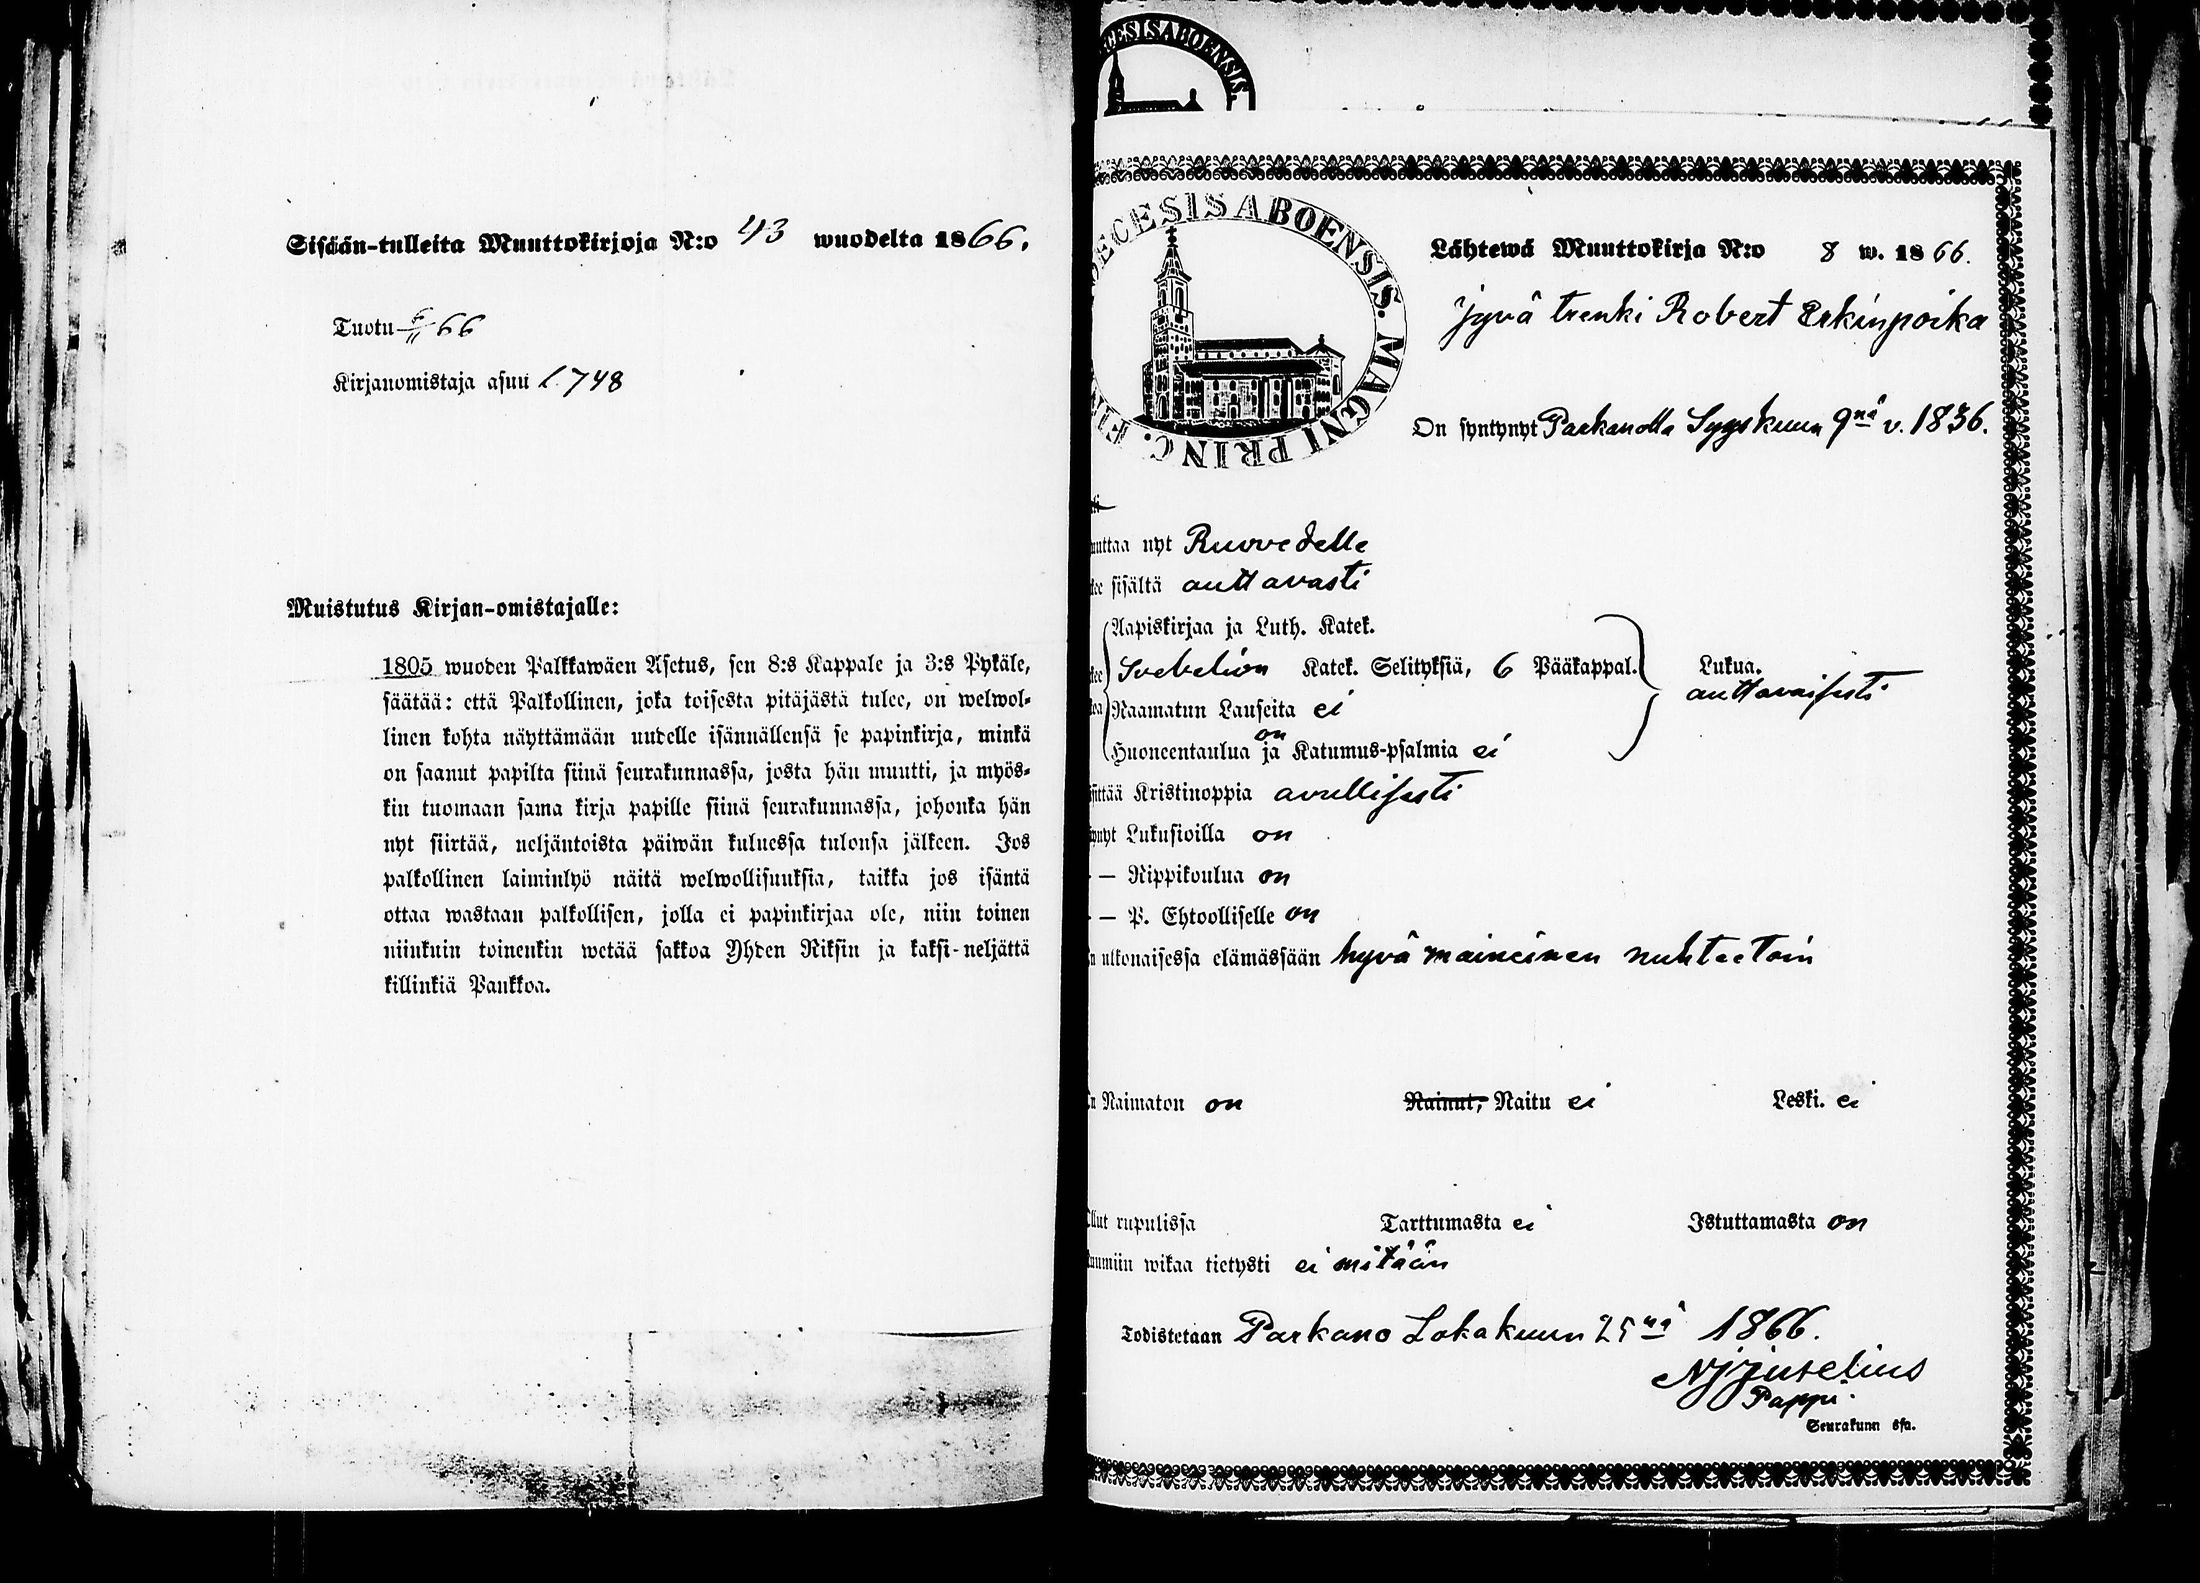 Sisään-tulleita Muuttokirjoja N:o 43 wuodelta 1866.
Tuotu 6/11 66
Kirjanomistaja asuu l. 748
Muistutus Kirjan-omistajalle:
1805 wuoden Palkkawäen Asetus, sen 8:s Kappale ja 3:s Pykäle,
säätää: että Palkollinen, joka toisesta pitäjästä tulee, on welwol-
linen kohta näyttämään uudelle isännällensä se papinkirja, minkä
on saanut papilta siinä seurakunnassa, josta hän muutti, ja myös-
kin tuomaan sama kirja papille siinä seurakunnassa, johonka hän
nyt siirtää, neljäntoista päiwän kuluessa tulonsa jälkeen. Jos
palkollinen laiminlyö näitä welwollisuuksia, taikka jos isäntä
ottaa wastaan palkollisen, jolla ei papinkirjaa ole, niin toinen
niinkuin toinenkin wetää sakkoa Yhden Riksin ja kaksi-neljättä
killinkiä Pankkoa.
ECESIS ABOENSIS.
ECESIS ABOENSIS. MAGNI PRINC. FI
Lähtewä Muuttokirja N:o 8 w. 1866.
Jyvä trenki Robert Erkinpoika
On syntynyt Parkanolla Syyskuun 9nä v. 1836.
uttaa nyt Ruovedelle
ee sisältä auttavasti
Aapiskirjaa ja Luth. Katek.
Svebeliön Katek. Selityksiä, 6 Pääkappal. Lukua.
auttavaisesti
Raamatun Lauseita ei
on
Huoneentaulua ja Katumus-psalmia ei
sittää Kristinoppia avullisesti
ynyt Lukusioilla on
— Rippikoulua on
— P. Ehtoolliselle on
n ulkonaisessa elämässään hyvä maineinen nuhteetoin
n Naimaton on Nainut, Naitu ei Leski. ei
llut rupulissa Tarttumasta ei Istuttamasta on
uumiin wikaa tietysti ei mitään
Todistetaan Parkano Lokakuun 25nä 1866.
Juselius
Pappi
Seurakunn ssa.